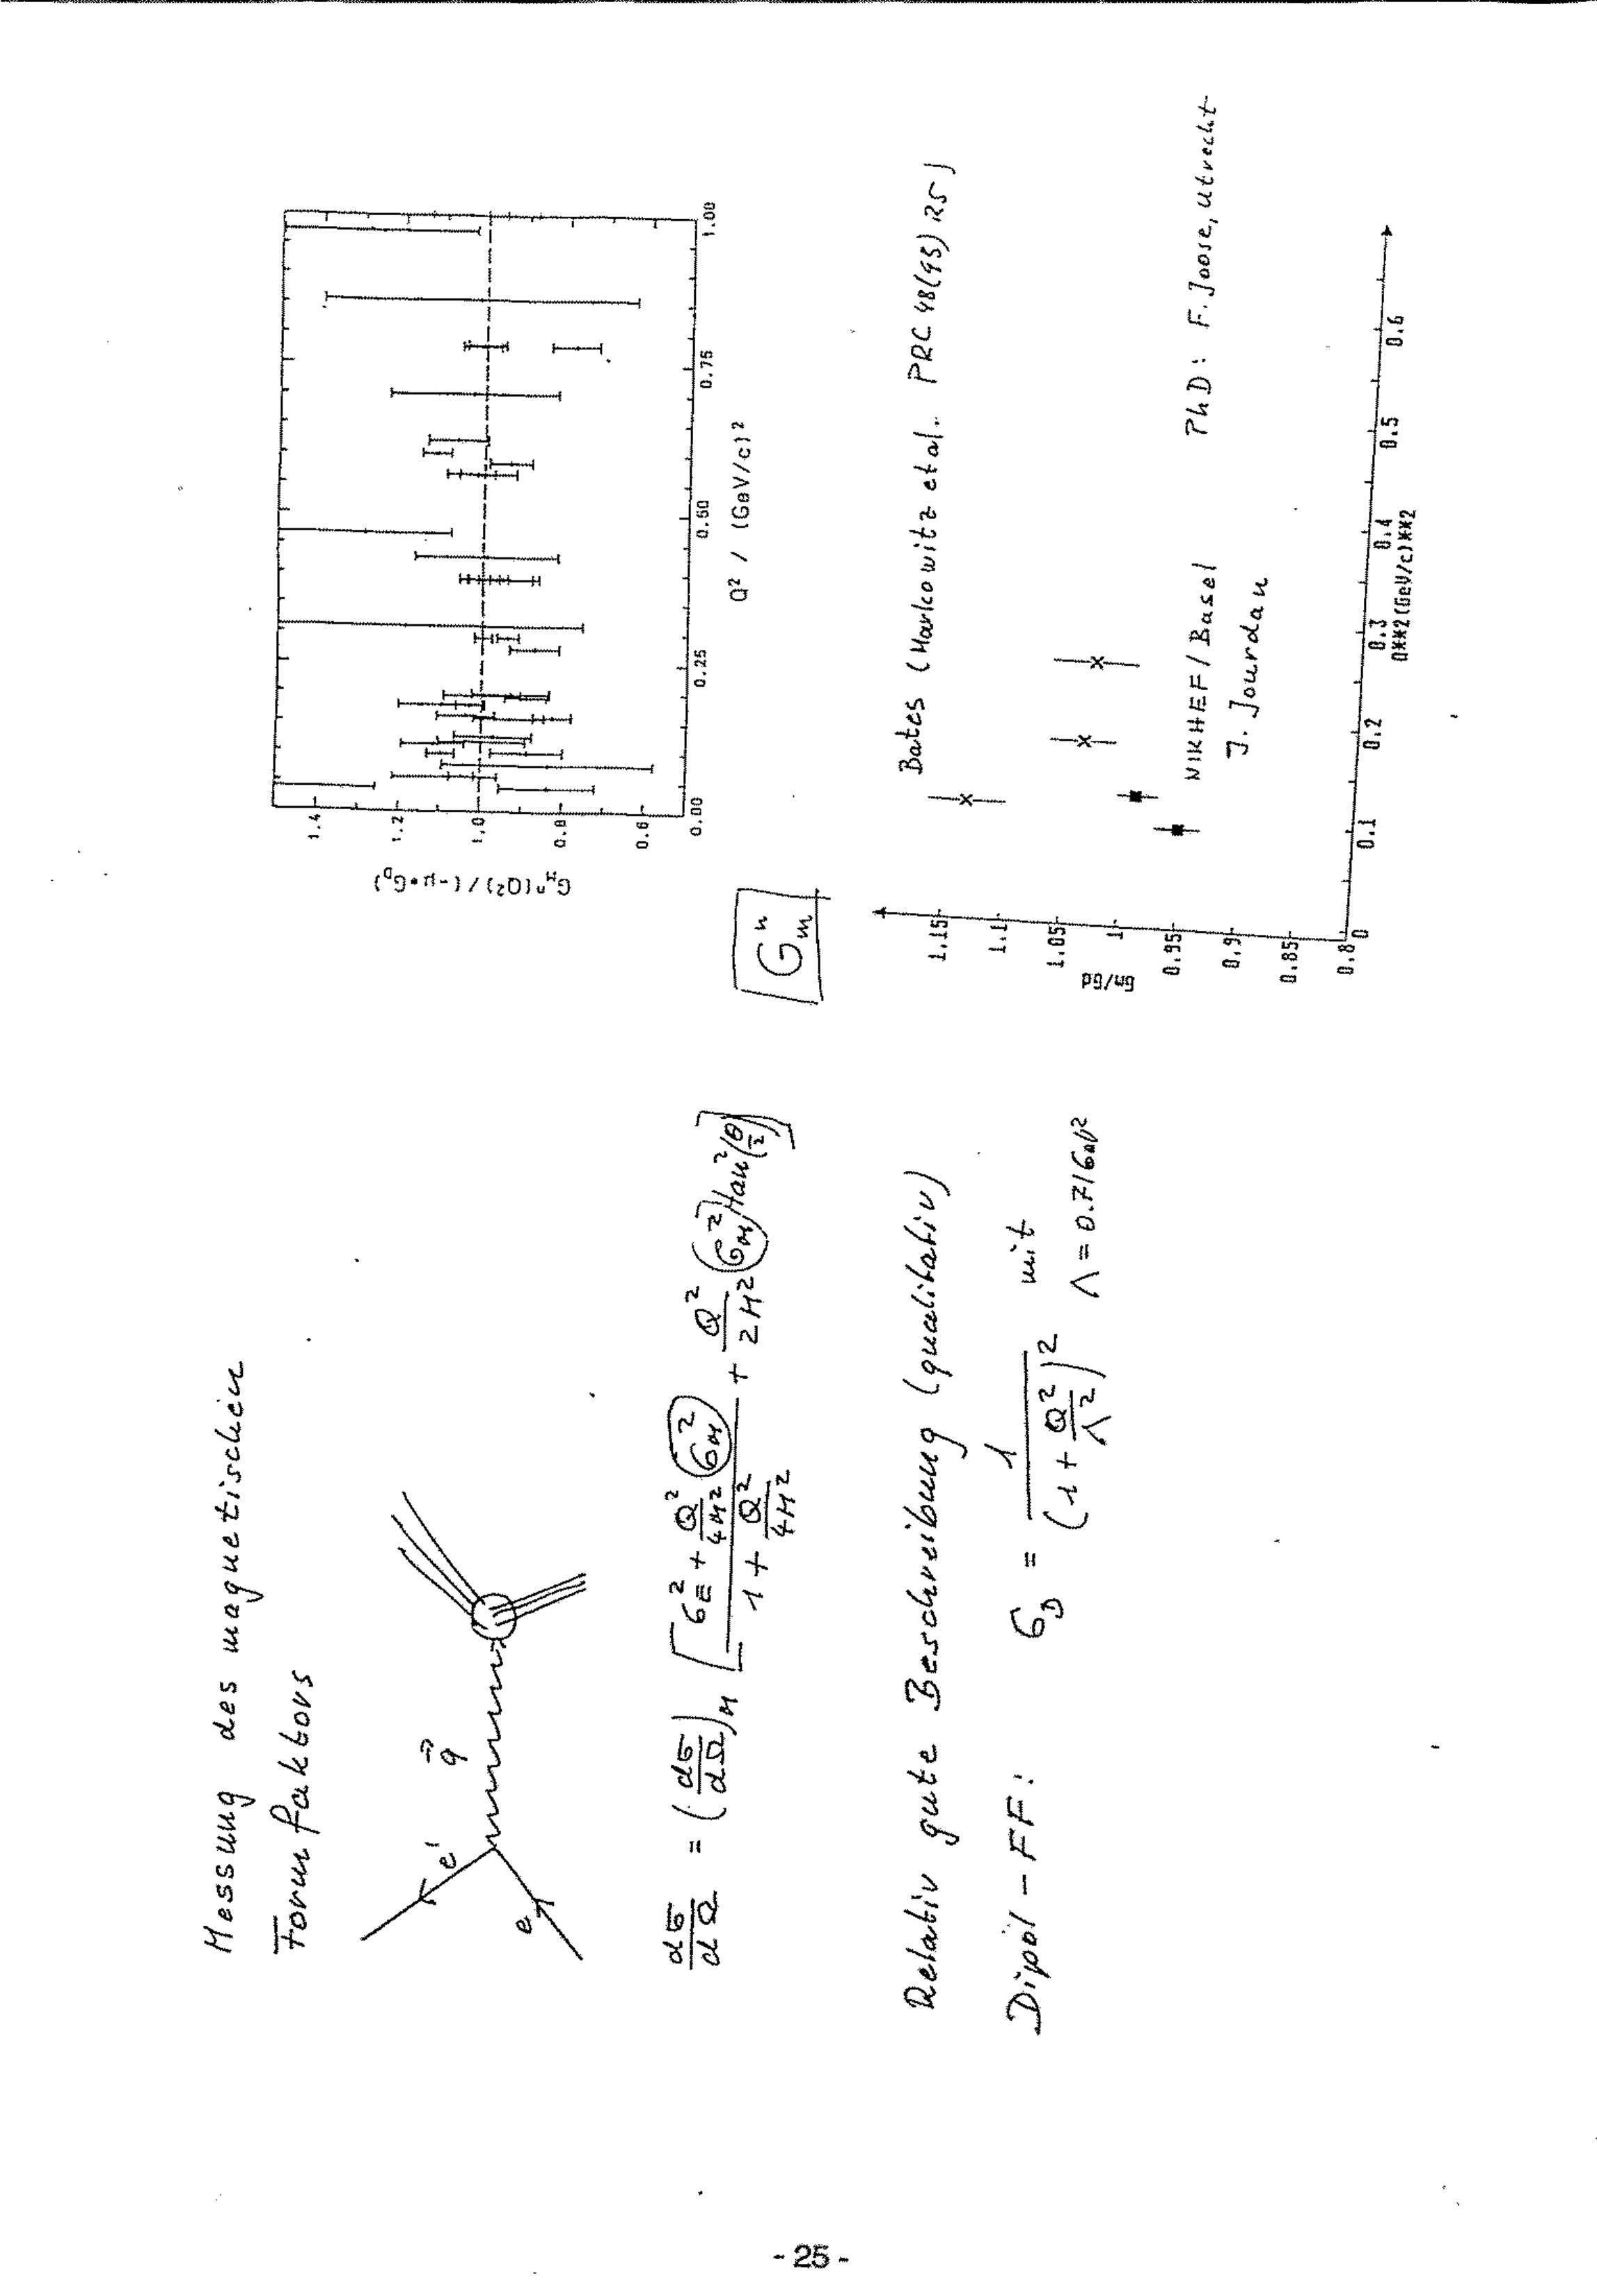 Messung des magnetischen
Formfaktors
e'
q⃗
e
dσ/dΩ = (dσ/dΩ)_M [ (G_E^2 + Q^2/4M^2 G_M^2) / (1 + Q^2/4M^2) + Q^2/2M^2 G_M^2 tan^2(θ/2) ]
Relativ gute Beschreibung (qualitativ)
Dipol-FF: G_D = 1 / (1 + Q^2/Λ^2)^2 mit
Λ = 0.71 GeV^2
G_M^n(Q^2)/(-μ•G_D)
1.4
1.2
1.0
0.8
0.6
0.00 0.25 0.50 0.75 1.00
Q^2 / (GeV/c)^2
G_m^n
Bates (Markowitz et al. PRC 48(93) R5)
Gm/Gd
1.15
1.1
1.05
1
0.95
0.9
0.85
0.8
NIKHEF/Basel PhD: F. Joose, Utrecht
J. Jourdan
0 0.1 0.2 0.3 0.4 0.5 0.6
Q**2(GeV/c)**2
- 25 -